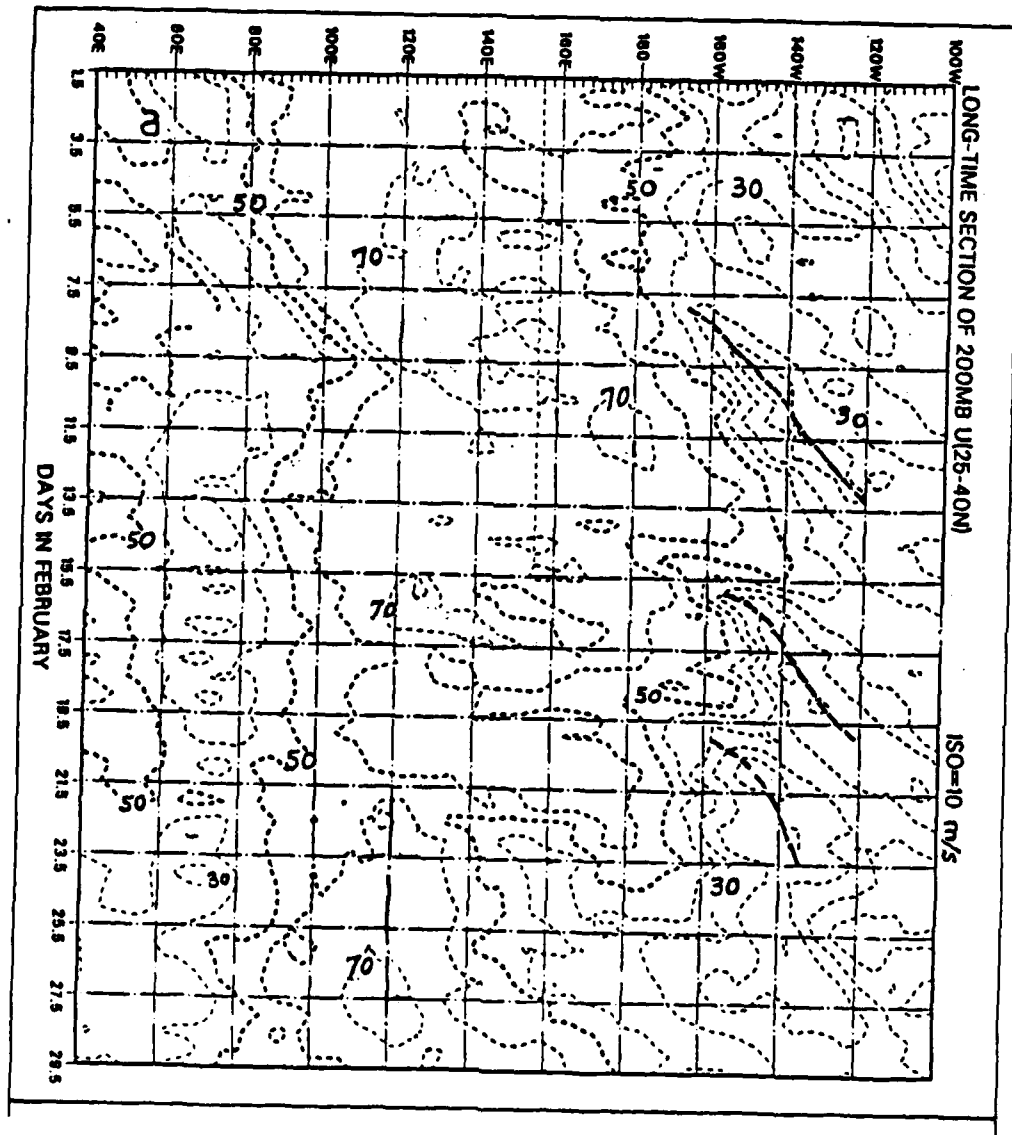 LONG-TIME SECTION OF 200MB U(25-40N) ISO=10 m/s
40E 60E 80E 100E 120E 140E 160E 180 160W 140W 120W 100W
1.5
3.5
5.5
7.5
9.5
11.5
13.5
15.5
17.5
19.5
21.5
23.5
25.5
27.5
29.5
DAYS IN FEBRUARY
a
50 30
50
70
70 30
50
70
50
50
50
30 30
70